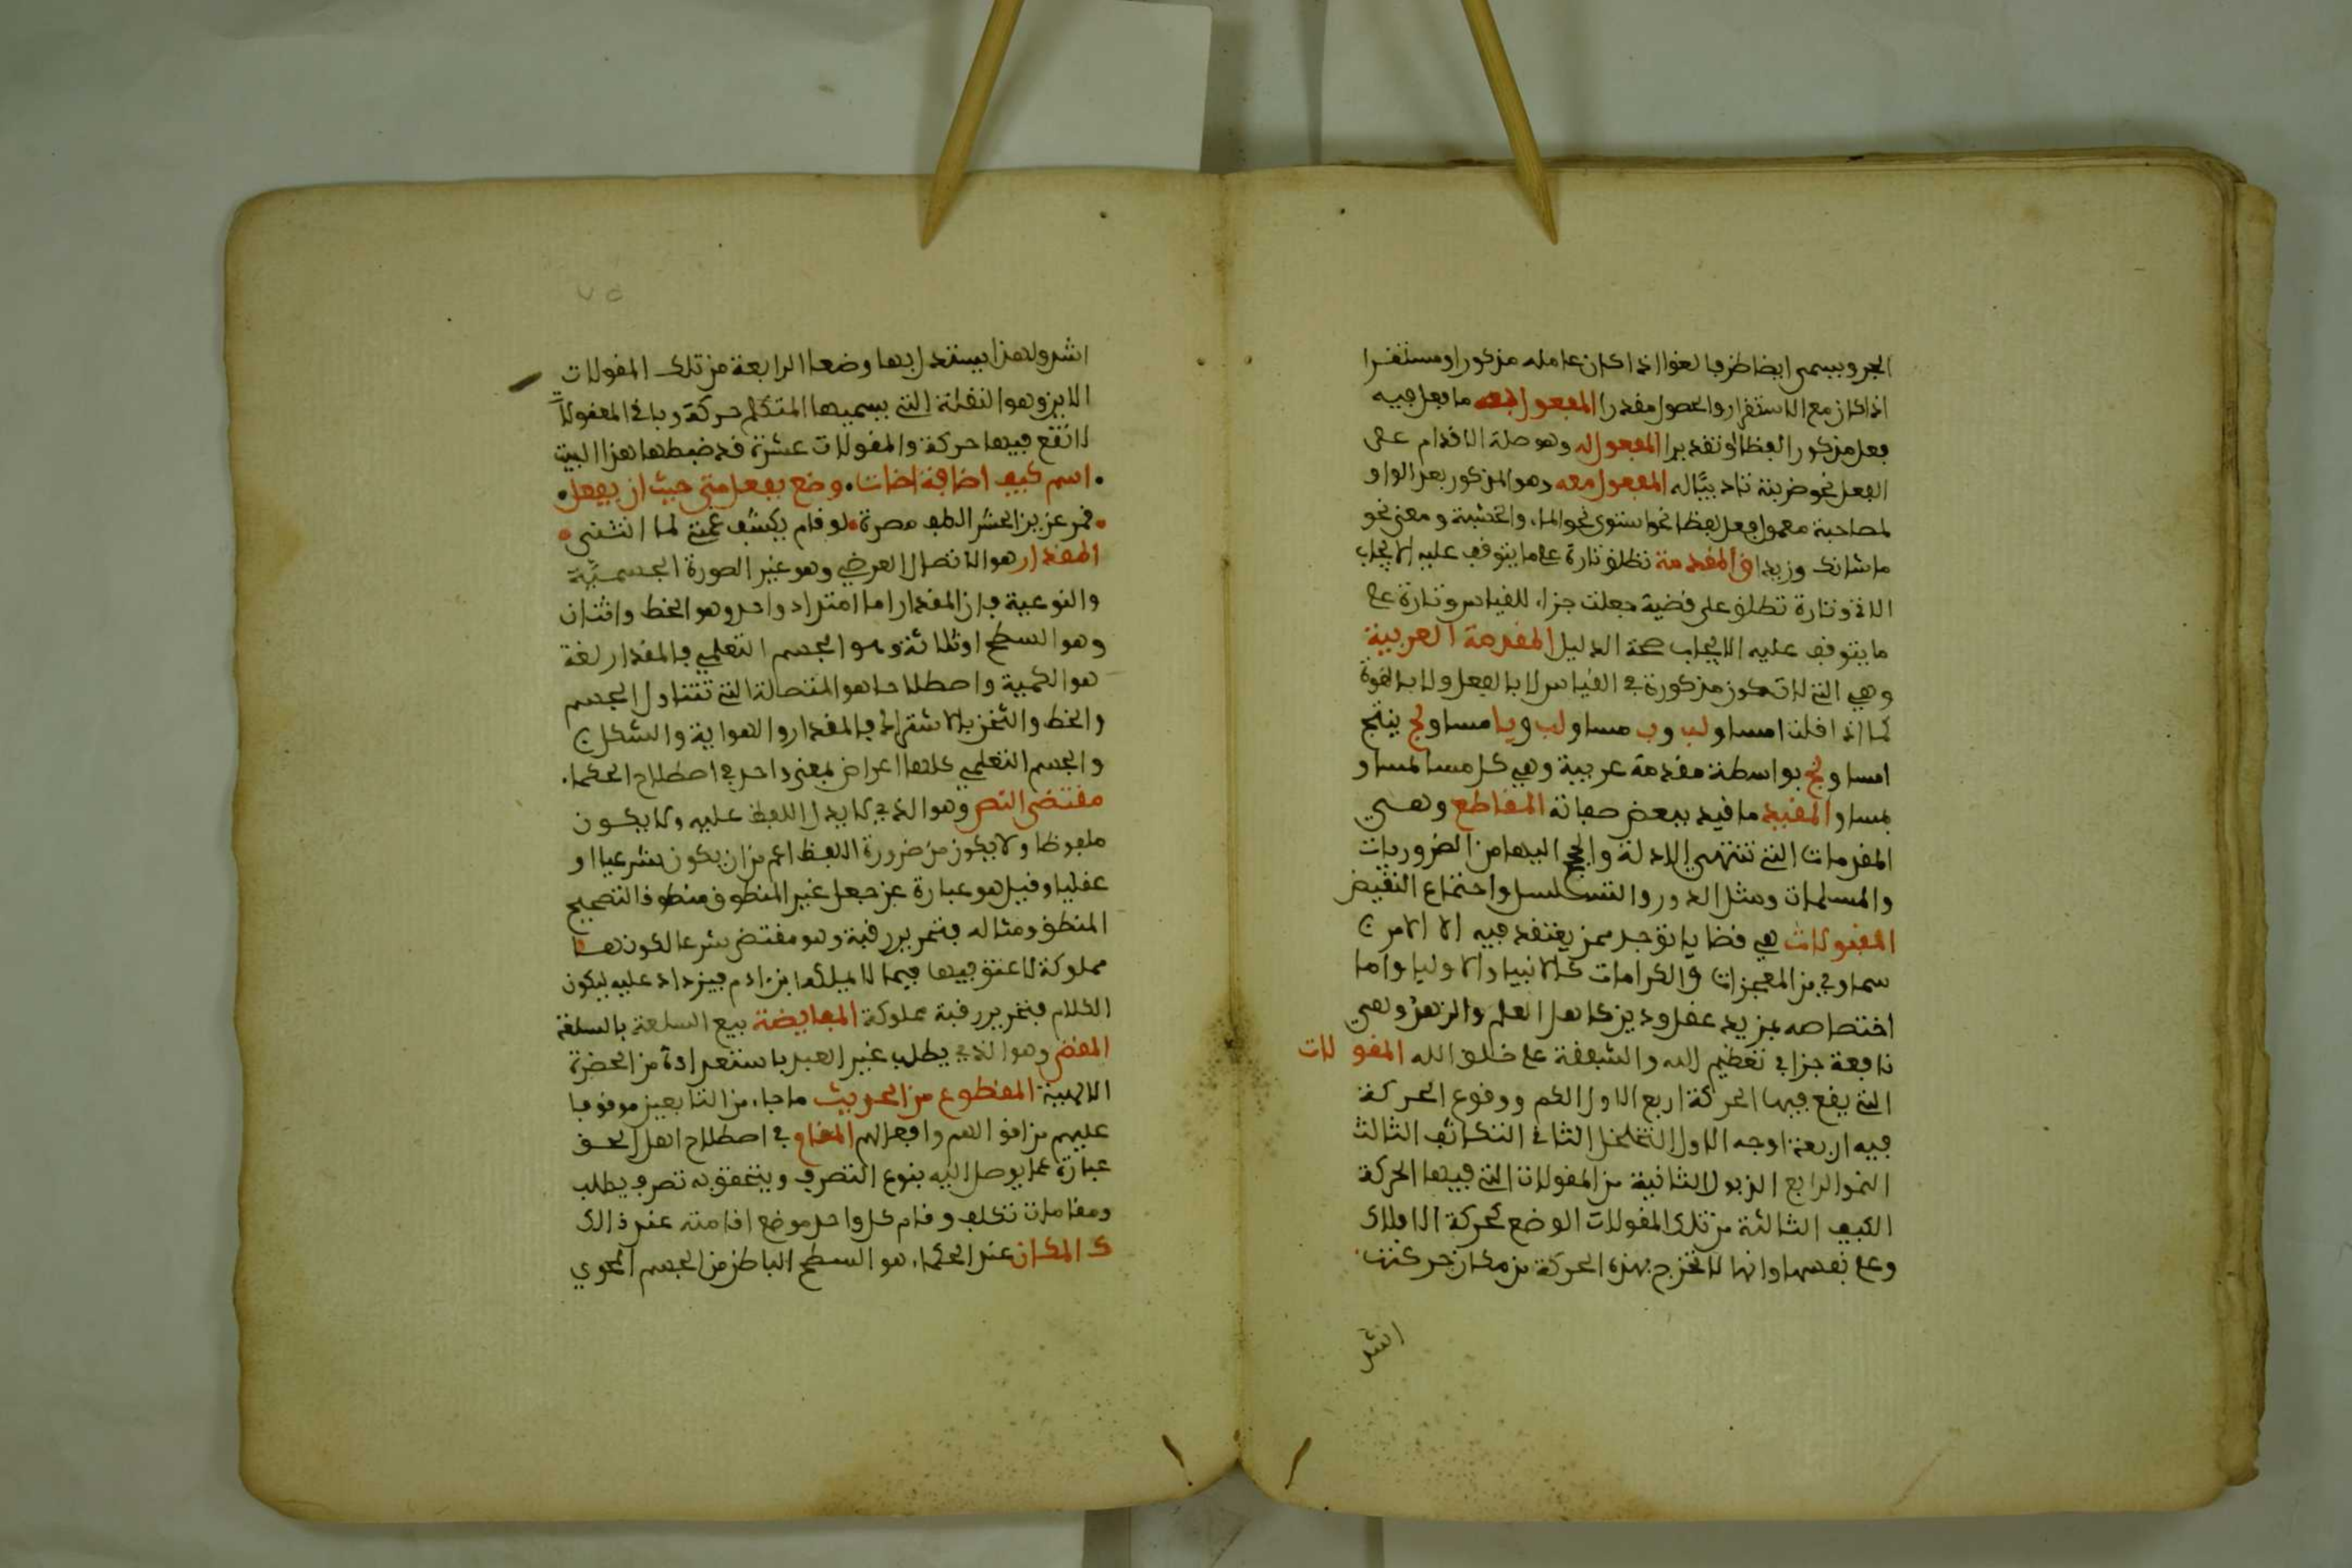 الجر ويسمى ايضا ظرفا لغوا اذا كان عامله مذكورا ومستقرا
اذا كان مع الاستقرار والحصول مقدرا المفعول فيه ما فعل فيه
فعل مذكور لفظا او تقديرا المفعول له وهو علة الاقدام على
الفعل نحو ضربته تاديبا له المفعول معه وهو المذكور بعد الواو
لمصاحبة معمول فعل لفظا نحو استوى نحو الماء والخشبة ومعنى نحو
ما شانك وزيدا المقدمة تطلق تارة على ما يتوقف عليه الابحاث
الاتي وتارة تطلق على قضية جعلت جزاء للقياس وتارة على
ما يتوقف عليه الايجاب صحة الدليل المقدمة الغريبة
وهي التي لا تكون مذكورة في القياس لا بالفعل ولا بالقوة
كما اذا قلنا امساو لب وب مساو لب ويا مساو لج ينتج
امساو لج بواسطة مقدمة غريبة وهي كل مسا لمساو
لمساو المقيد ما قيد ببعض صفاته المقاطع وهي
المقدمات التي تنتهي الادلة والحجج اليها من الضروريات
والمسلمات ومثل الدور والتسلسل واجتماع النقيض
المقبولات هي قضايا توجد ممن يعتقد فيه الا الامر
سماوي من المعجزات والكرامات كالانبيا والاوليا واما
اختصاصه بمزيد عقل ودين كاهل العلم والزهد وهي
نافعة جدا في تعظيم الله والشفقة على خلق الله المقولات
التي يقع فيها الحركة اربع الاول الكم ووقوع الحركة
فيه اربعة اوجه الاول التخلخل الثاني التكاثف الثالث
النمو الرابع الذبول الثانية من المقولات التي فيها الحركة
الكيف الثالثة من تلك المقولات الوضع كحركة الافلاك
وعلى نفسها وانها لا تخرج بهذه الحركة من مكان حركتت
اشر
٧٥
اشر ولهذا يستدل بها وضعا الرابعة من تلك المقولات
الاين وهو النقلة التي يسميها المتكلم حركة وباقي المقولا
لا تقع فيها حركة والمقولات عشرة قد ضبطها هذا البيت
اسم كيف اضافة اضات وضع بفعل متى حيث ان يفعل
قمر عزيز الحسن الطف مصره لو قام يكشف غمتي لما انثنى
المقدار هو الاتصال العرضي وهو غير الصورة الجسمية
والنوعية فان المقدار اما امتداد واحد وهو الخط واثنان
وهو السطح او ثلاثة وهو الجسم التعلمي فالمقدار لغة
هو الكمية واصطلاحا هو المتصلة التي تتناول الجسم
والخط والثخن بالاشتراك فالمقدار والهواية والشكل
والجسم التعلمي كلها اعراض بمعنى واحد في اصطلاح الحكما
مقتضى النص وهو الذي لا يدل اللفظ عليه ولا يكون
ملفوظا ولا يكون من ضرورة اللفظ اعم من ان يكون شرعيا او
عقليا وقيل هو عبارة عن جعل غير المنطوق منطوقا لتصحيح
المنطوق ومثاله فتحرير رقبة وهو مقتضى شرعا لكونها
مملوكة لا عتق فيها فيما لا يملكه ابن ادم فيزداد عليه ليكون
الكلام فتحرير رقبة مملوكة المقايضة بيع السلعة بالسلعة
المقضى وهو الذي يطلب غير العبد باستعدادة من الحضرة
الالهية المقطوع من الحديث ما جاء من التابعين موقوفا
عليهم من اقوالهم وافعالهم المقام في اصطلاح اهل الحق
عبارة عما يوصل اليه بنوع التصرف ويتحقق به تصرف يطلب
ومقامات تكلف وقام كل واحد موضع اقامته عند ذالك
ك المكان عند الحكماء هو السطح الباطن من الجسم المحوي